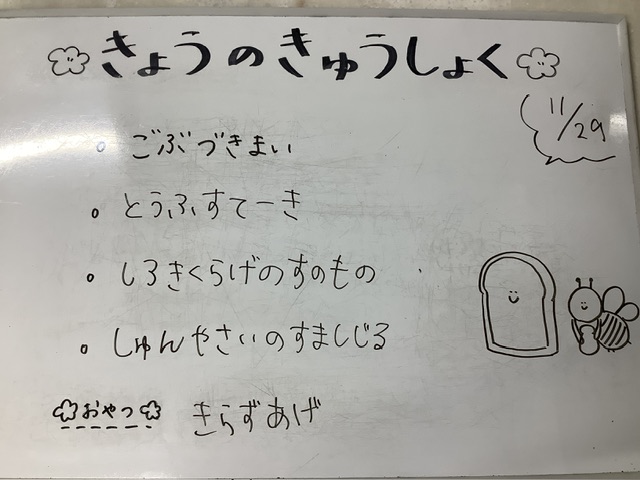 きょうのきゅうしょく
11/29
ごぶづきまい
とうふすてーき
しろきくらげのすのもの
しゅんやさいのすましじる
おやつ きらずあげ